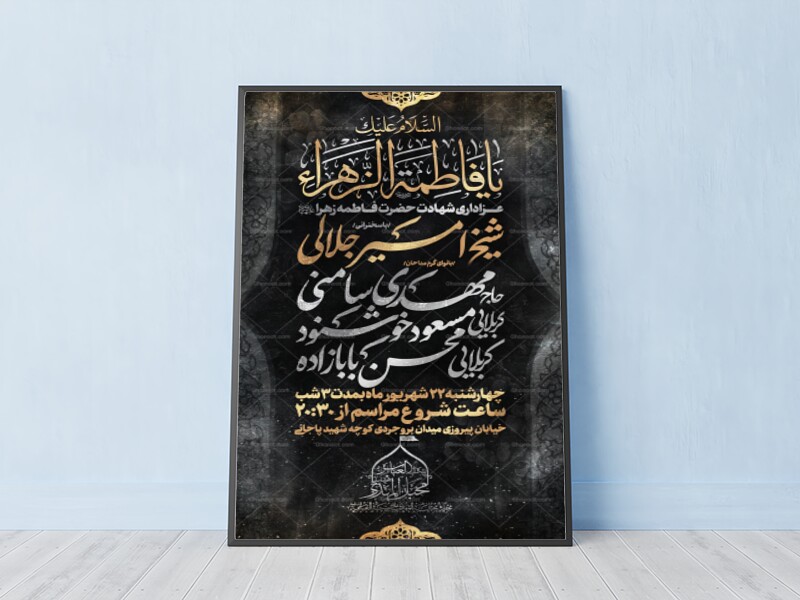 السَّلامُ عَلَیْكِ
یا فاطِمَةَ الزَّهراء
عزاداری شهادت حضرت فاطمه زهرا
/باسخنرانی/
شیخ امیر جلالی
/بانوای گرم مداحان/
حاج مهدی سامنی
کربلایی مسعود خوشنود
کربلایی محسن بابازاده
چهارشنبه ۲۲ شهریور ماه بمدت ۳ شب
ساعت شروع مراسم از ۲۰:۳۰
خیابان پیروزی میدان بروجردی کوچه شهید پاجانی